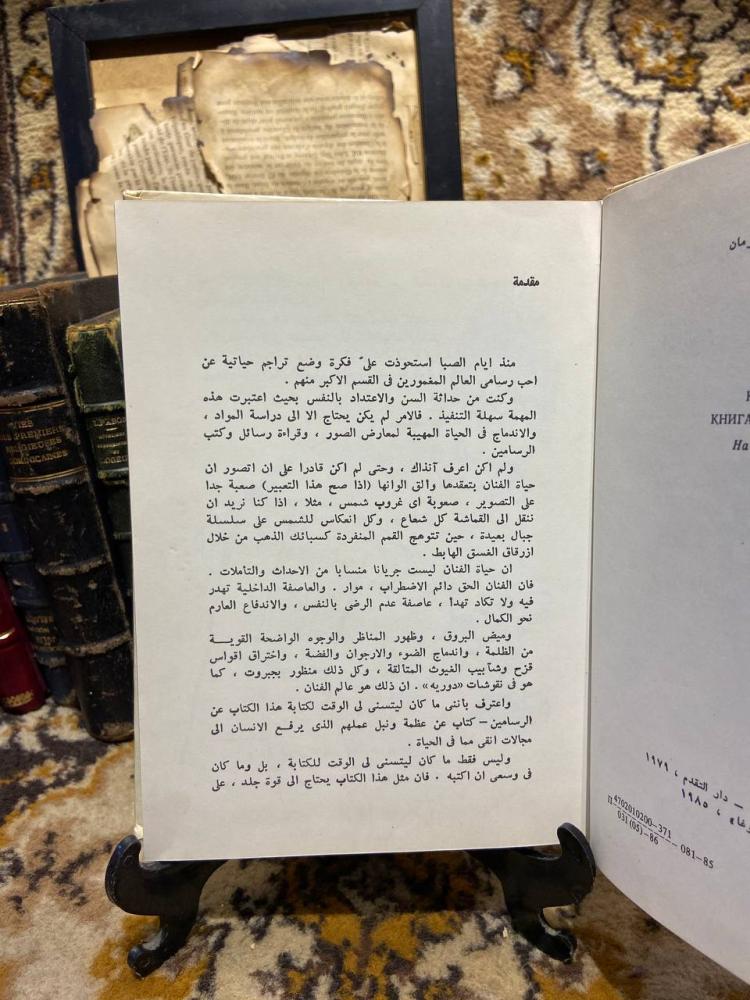 مقدمة
منذ ايام الصبا استحوذت علىّ فكرة وضع تراجم حياتية عن
احب رسامى العالم المغمورين فى القسم الاكبر منهم .
وكنت من حداثة السن والاعتداد بالنفس بحيث اعتبرت هذه
المهمة سهلة التنفيذ . فالامر لم يكن يحتاج الا الى دراسة المواد ،
والاندماج فى الحياة المهيبة لمعارض الصور ، وقراءة رسائل وكتب
الرسامين .
ولم اكن اعرف آنذاك ، وحتى لم اكن قادرا على ان اتصور ان
حياة الفنان بتعقدها وألق الوانها (اذا صح هذا التعبير) صعبة جدا
على التصوير ، صعوبة اى غروب شمس ، مثلا ، اذا كنا نريد ان
ننقل الى القماشة كل شعاع ، وكل انعكاس للشمس على سلسلة
جبال بعيدة ، حين تتوهج القمم المنفردة كسبائك الذهب من خلال
ازرقاق الغسق الهابط .
ان حياة الفنان ليست جريانا منسابا من الاحداث والتأملات .
فان الفنان الحق دائم الاضطراب ، موار . والعاصفة الداخلية تهدر
فيه ولا تكاد تهدأ ، عاصفة عدم الرضى بالنفس ، والاندفاع العارم
نحو الكمال .
وميض البروق ، وظهور المناظر والوجوه الواضحة القويــة
من الظلمة ، واندماج الضوء والارجوان والفضة ، واختراق اقواس
قزح وشآبيب الغيوث المتألقة ، وكل ذلك منظور بجبروت ، كما
هو فى نقوشات «دوريه» . ان ذلك هو عالم الفنان .
واعترف بأننى ما كان ليتسنى لى الوقت لكتابة هذا الكتاب عن
الرسامين – كتاب عن عظمة ونبل عملهم الذى يرفــع الانسان الى
مجالات انقى مما فى الحياة .
وليس فقط ما كان ليتسنى لى الوقت للكتابة ، بل وما كان
فى وسعى ان اكتبه . فان مثل هذا الكتاب يحتاج الى قوة جلد ، على
КНИГА
На
– دار التقدم ، ١٩٧٩
، ١٩٨٥
П 4702010200–371 / 031(05)–86 – 081–85
VIES